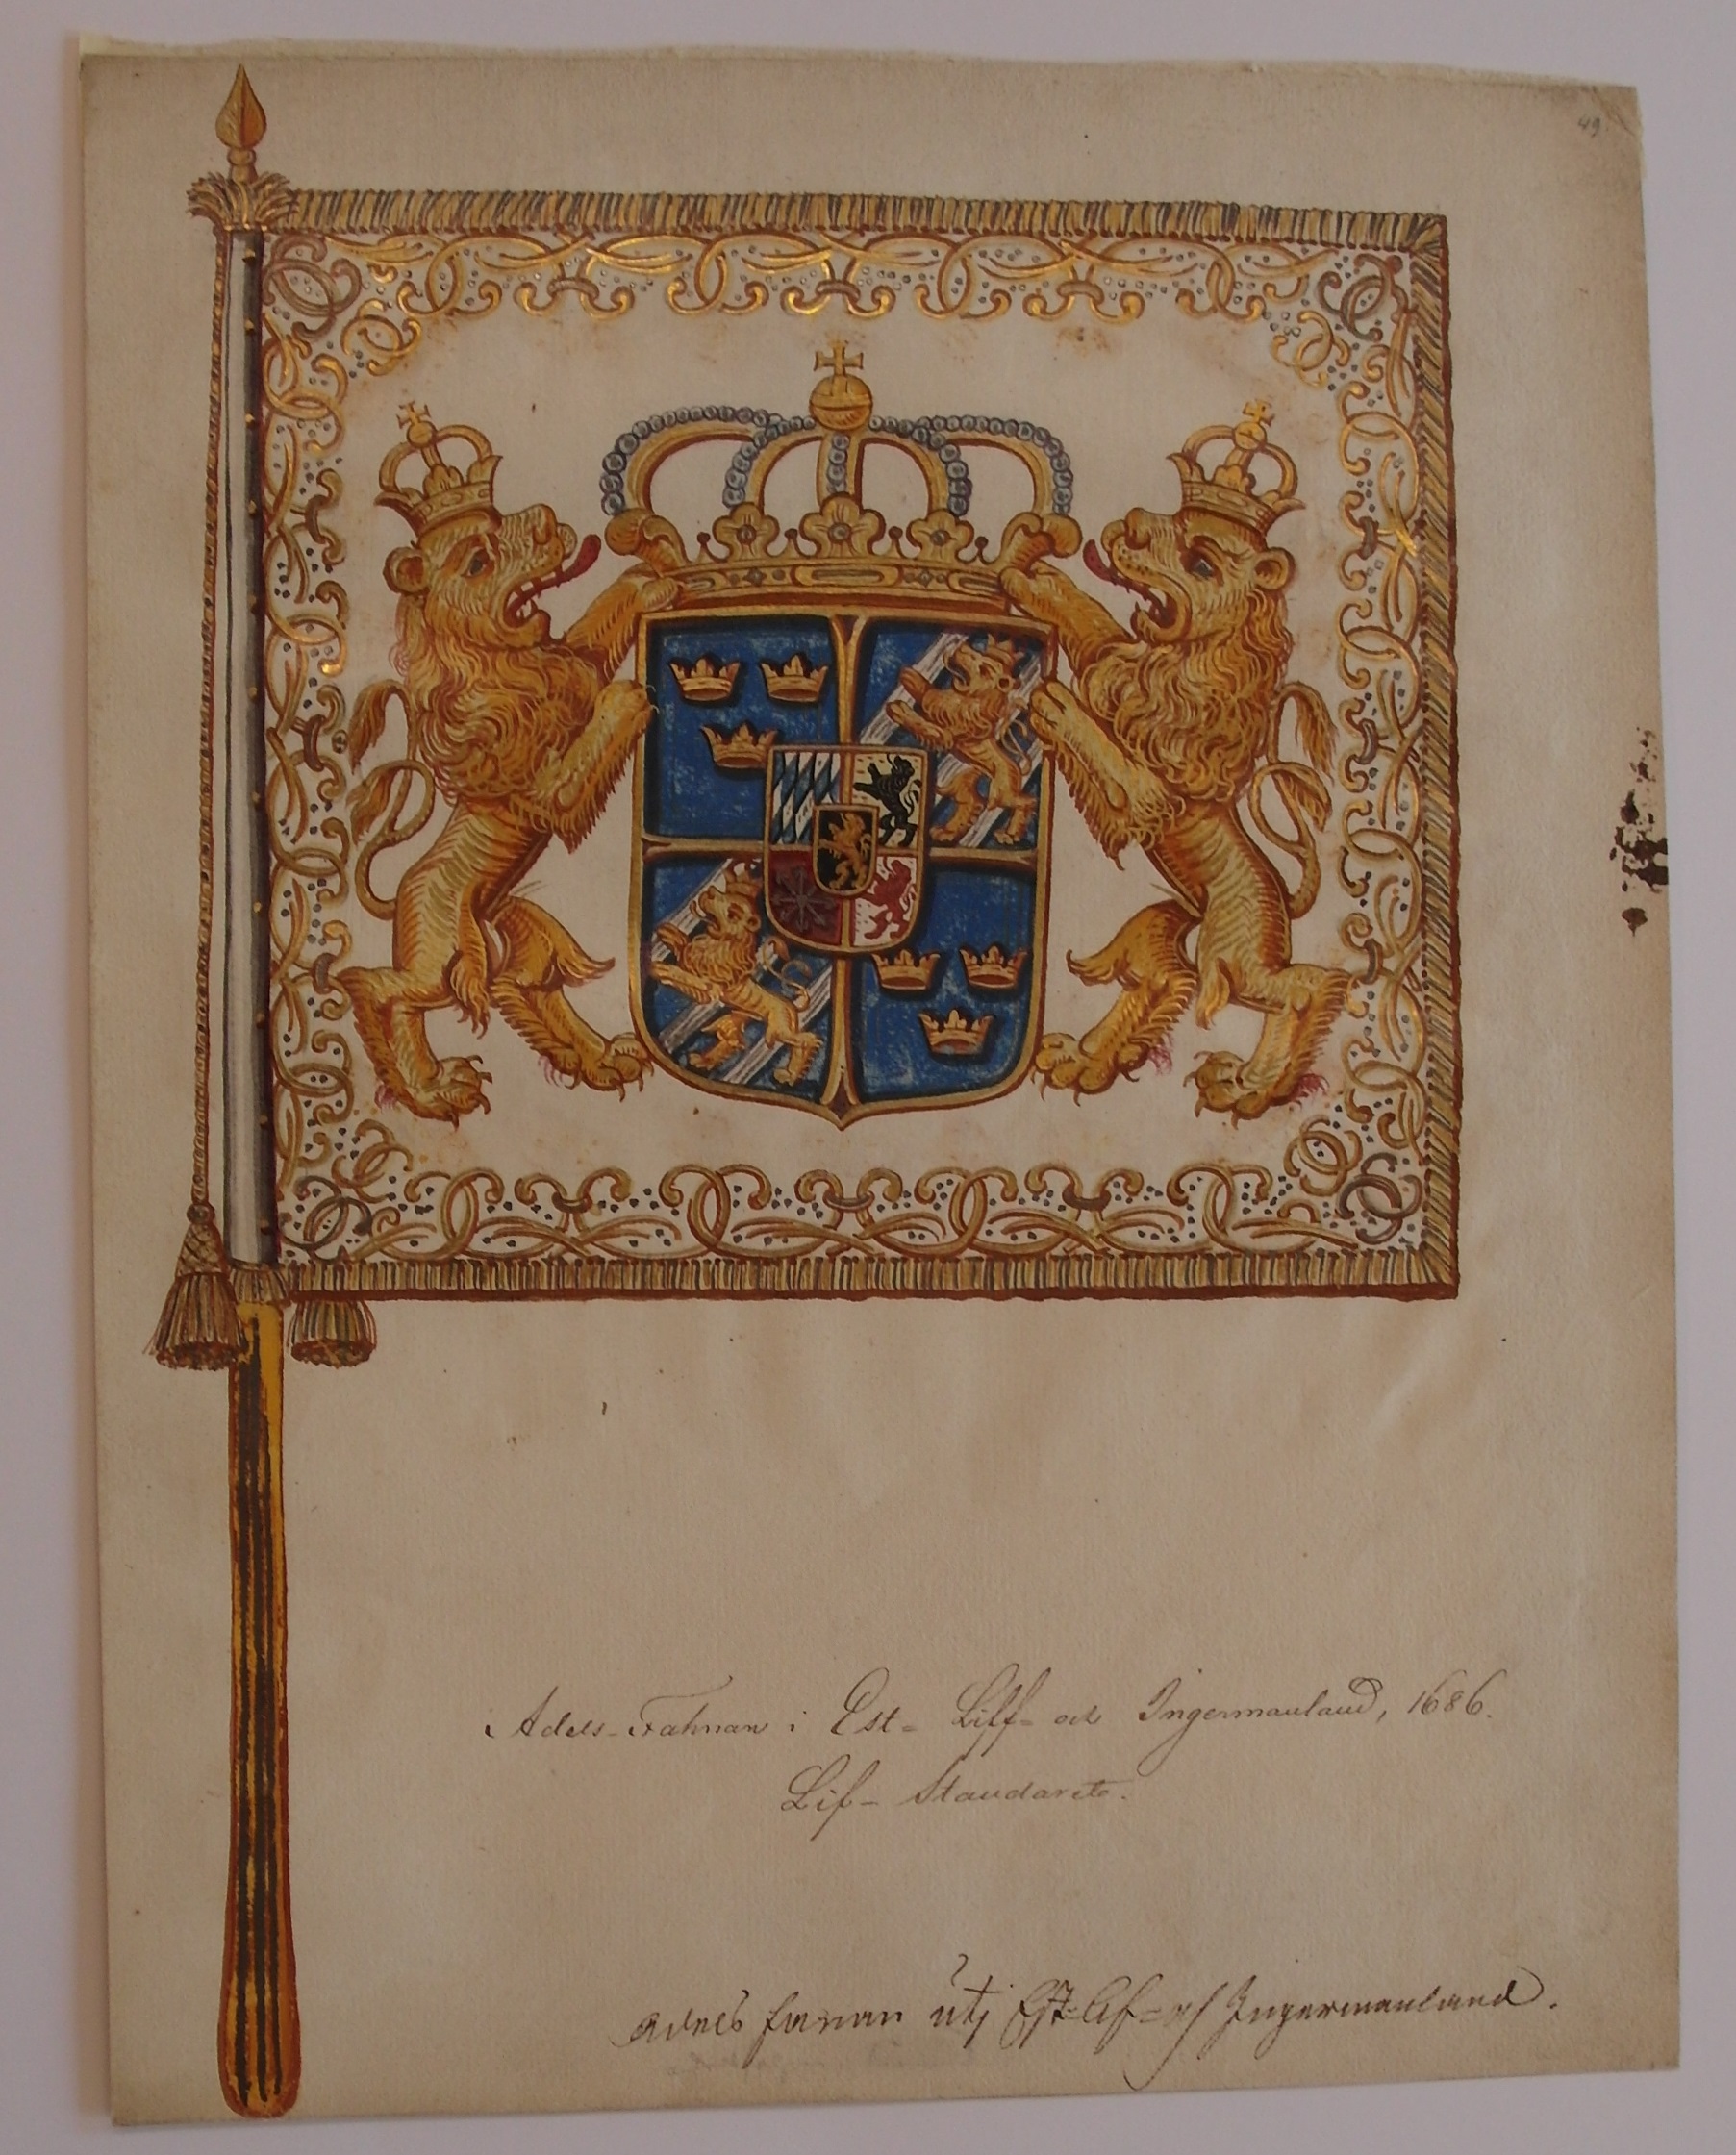 49
Adels-Fahnan i Est- Liff- och Ingermanland, 1686.
Lif- Standaret.
Adels fanan utj Est- Lif- och Ingermanland.